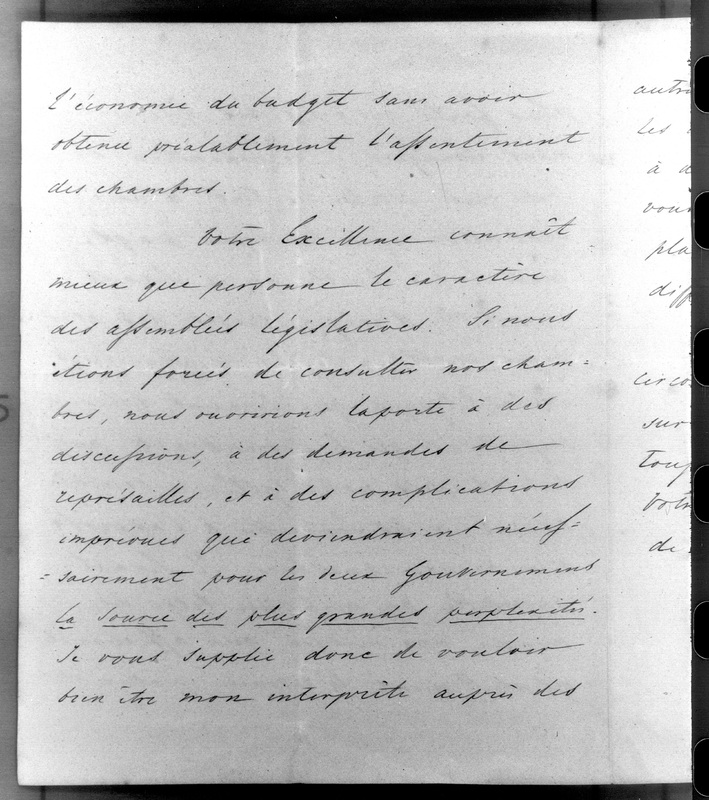 l'économie du budget sans avoir
obtenu préalablement l'assentiment
des chambres.
Votre Excellence connaît
mieux que personne le caractère
des assemblées législatives. Si nous
étions forcés de consulter nos cham=
bres, nous ouvririons la porte à des
discussions, à des demandes de
représailles, et à des complications
imprévues qui deviendraient néces=
=sairement pour les deux Gouvernements
la source des plus grandes perplexités.
Je vous supplie donc de vouloir
bien être mon interprète auprès des
autre
les
à d
vous
pla
diff
circo
sur
toup
Votr
de
5